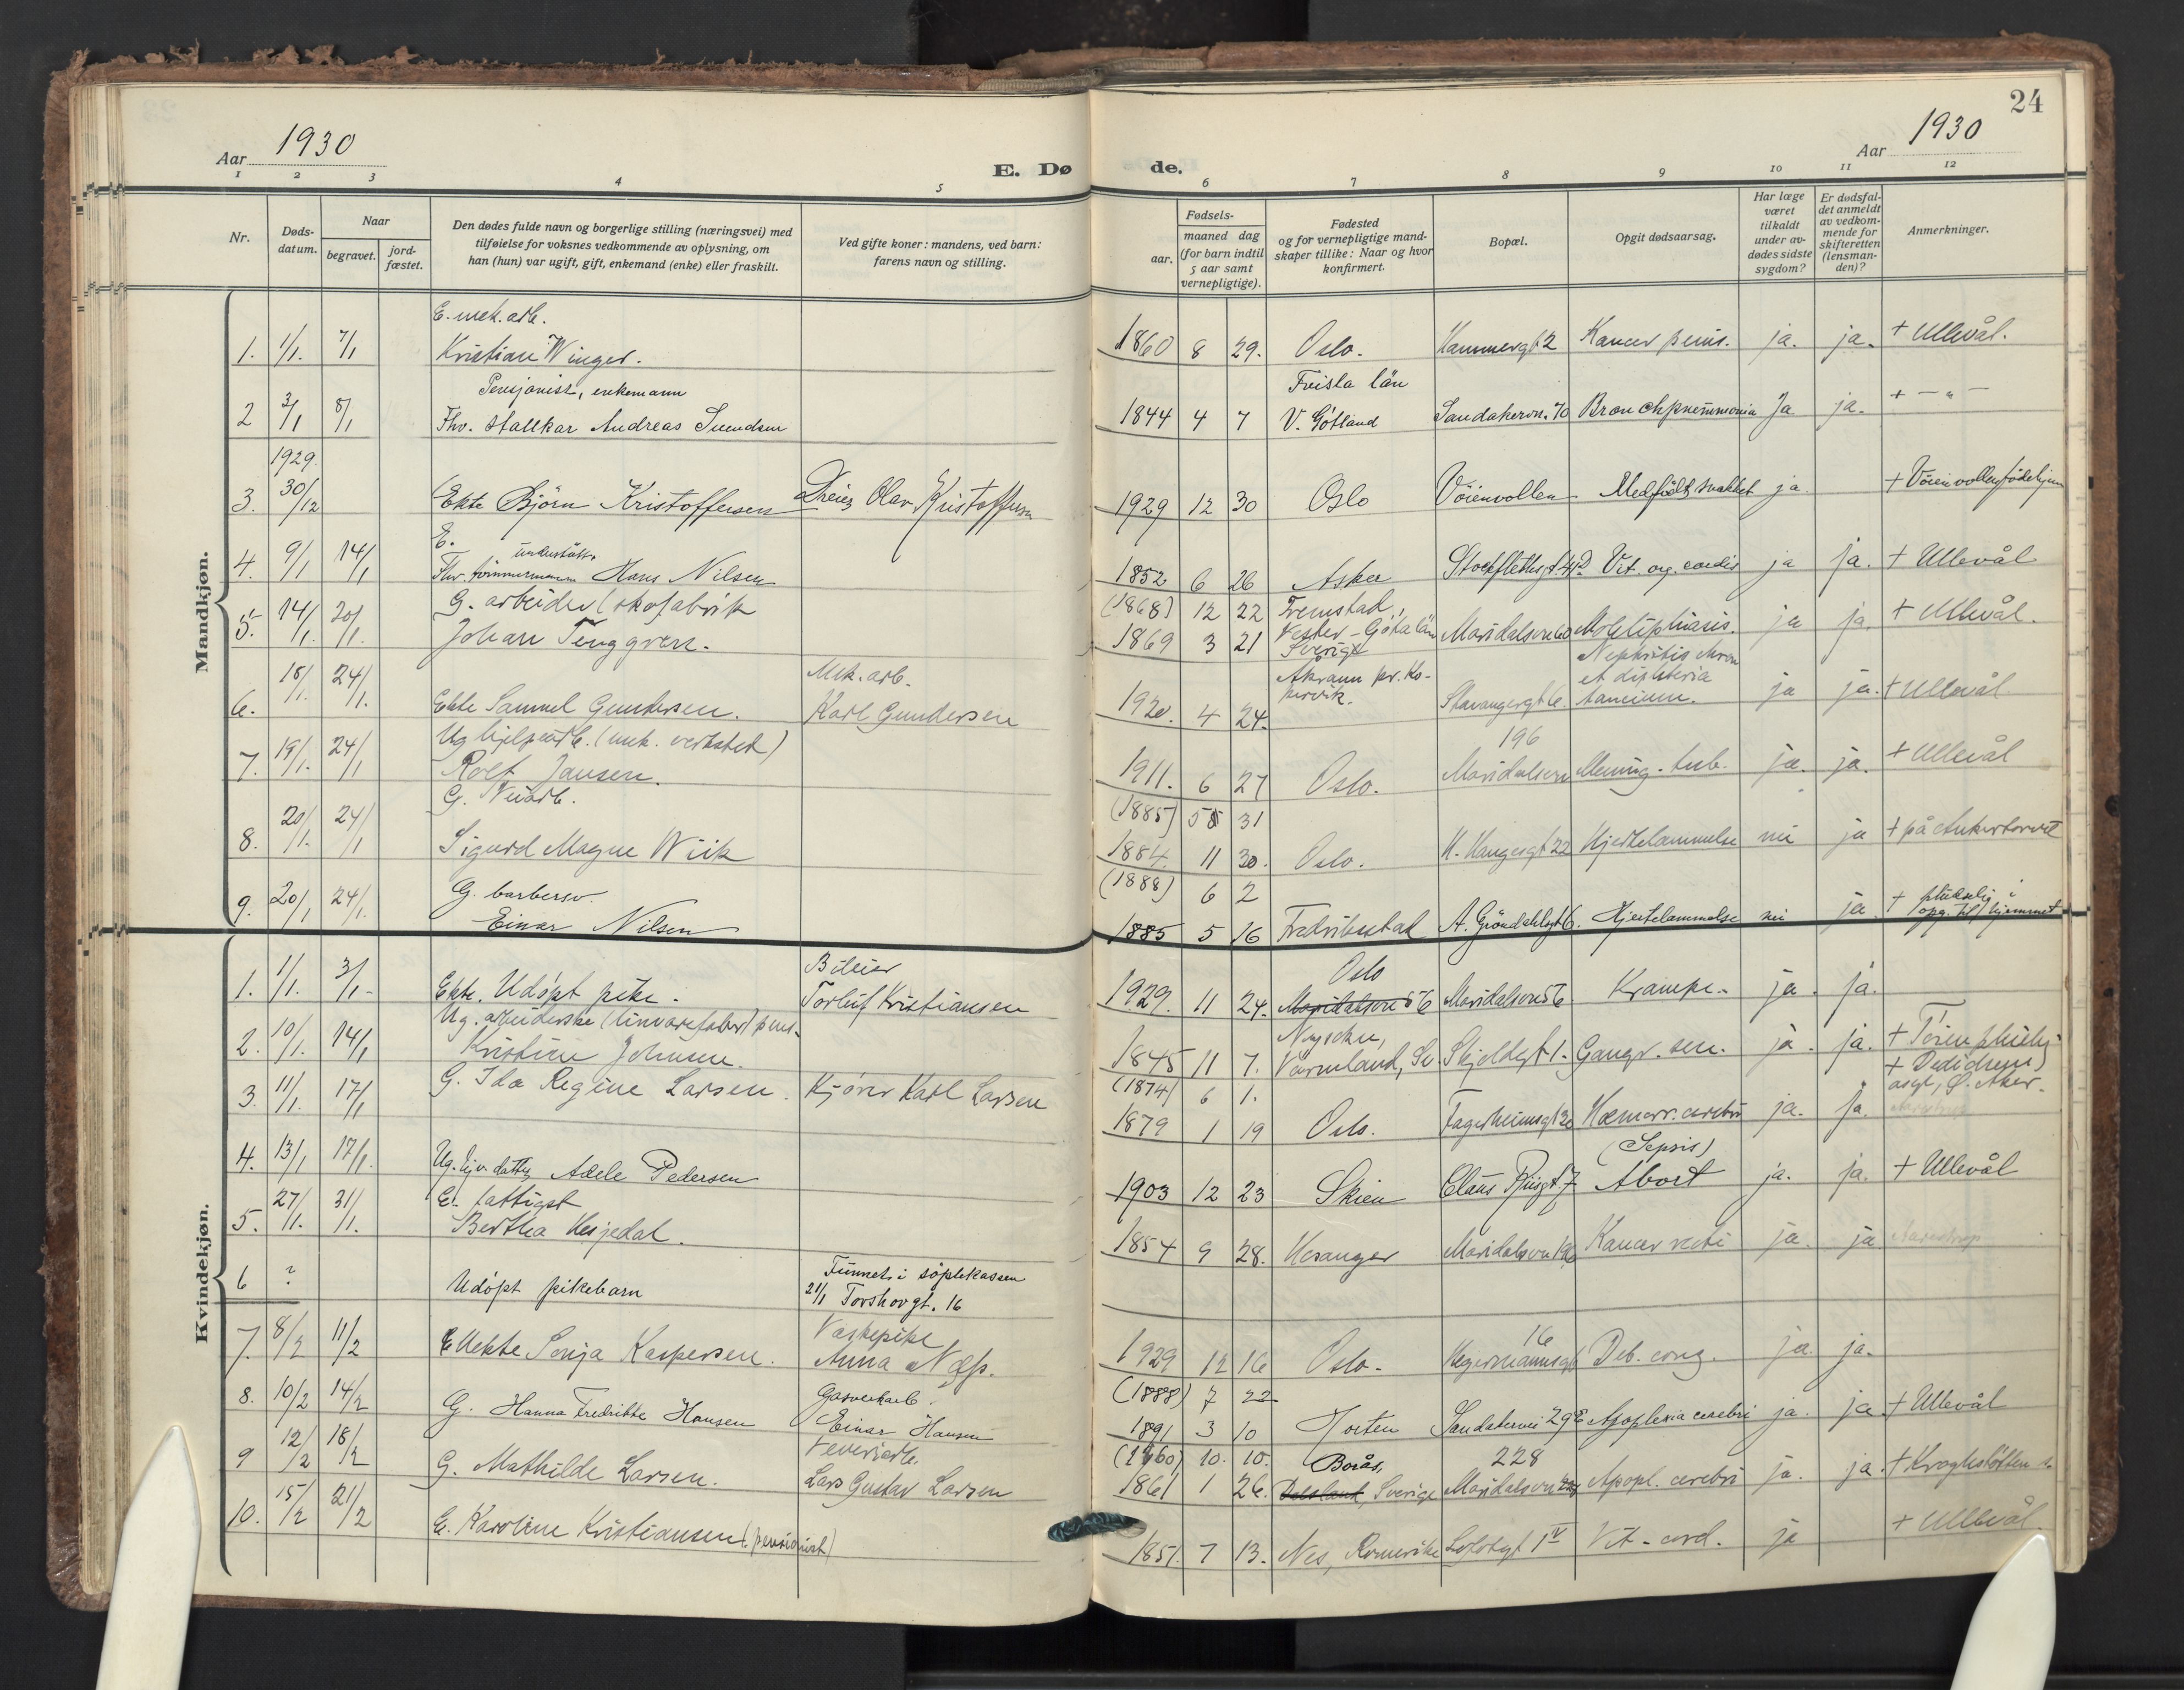 24
Aar 1930
E. Dø de.
Aar 1930
1 2 3 4 5 6 7 8 9 10 11 12
Nr.
Døds-datum.
Naar
begravet.
jord-fæstet.
Den dødes fulde navn og borgerlige stilling (næringsvei) med
tilføielse for voksnes vedkommende av oplysning, om
han (hun) var ugift, gift, enkemand (enke) eller fraskilt.
Ved gifte koner: mandens, ved barn:
farens navn og stilling.
Fødsels-
aar.
maaned dag
(for barn indtil
5 aar samt
vernepligtige).
Fødested
og for vernepligtige mand-
skaper tillike: Naar og hvor
konfirmert.
Bopæl.
Opgit dødsaarsag.
Har læge
været
tilkaldt
under av-
dødes sidste
sygdom?
Er dødsfal-
det anmeldt
av vedkom-
mende for
skifteretten
(lensman-
den)?
Anmerkninger.
Mandkjøn.
E. mek. arb.
1. 1/1. 7/1 Kristian Winger. 1860 8 29. Oslo. Hammergt 2 Kancer penis. ja. ja. + Ullevål.
Pensjonist, enkemann Frisla län
2 3/1 8/1 Fhv. stallkar Andreas Svendsen 1844 4 7 V. Götland Sandakervn. 70 Bronchpneumonia Ja ja. + — " —
1929.
3. 30/12 Ekte Björn Kristoffersen Dreier Olav Kristoffersen 1929 12 30 Oslo Vöienvollen Medfödt svakhet ja + Vöienvollen födehjem
E. understött.
4. 9/1 14/1 Fhv. tömmermann Hans Nilsen 1852 6 26 Asker Stockflethsgt. 41 Vit. org. cordis ja ja. + Ullevål
G. arbeider (skofabrik (1868) 12 22 Fremstad,
5. 14/1. 20/1. Johan Tenggren. 1869 3 21 Vester-Göta län Sverige Maridalsvn 60 ja ja. + Ullevål.
Mek. arb. Akrann pr. Ko-pervik. Nephritis chron et
6. 18/1. 24/1. Ekte Samuel Gundersen. Karl Gundersen 1920. 4 24. Stavangergt 6. ja ja. + Ullevål
Ug hjelpearb. (mek. verksted) 196
7. 19/1. 24/1 Rolf Jansen. 1911. 6 27 Oslo. Maridalsvn Mening. tub. ja. ja. + Ullevål
G. Veiarb. (1885) 5 31
8. 20/1. 24/1 Sigurd Magne Wiik 1884. 11 30. Oslo. H. Haugesgt 22 Hjertelammelse nei ja + på Ankertorvet
G. barbersv. (1888) 6 2
9. 20/1 24/1. Einar Nilsen 1885 5 16 Fredrikstad A. Gröndahlsgt 6. Hjertelammelse nei ja + plutselig i hjemmet
Kvindekjøn.
Bileier Oslo
1. 1/1. 3/1- Ekte. Udöpt pike. Torleif Kristiansen 1929. 11 24. Maridalsvn 56 Maridalsvn 56 Krampe. ja. ja.
Ug. arbeiderske (linvarefabr) pens. Nyscku,
2. 10/1. 14/1 Kristine Johnsen. 1845 11 7. Värmland, Sv. Skjoldgt 1. Gangr. sen. ja. ja. +
(1874) 6 1.
3. 11/1. 17/1 G. Ida Regine Larsen. Kjörer Karl Larsen 1879 1 19 Oslo. Fagerheimsgt 20 Hæmorr. cerebri ja. ja. + asyl, Ø. Aker.
(Sepsis)
4. 13/1 17/1. Ug. hjv. datter Adele Pedersen 1903 12 23 Skien Claus Riisgt. 7 Abort ja. ja. + Ullevål
E. fattigst
5. 27/1. 31/1. Bertha Hesjedal. 1854 9 28. Hosanger Maridalsvn 196 Kancer recti ja. ja
6 ? Udöpt pikebarn Funnet i söplekassen 21/1 Torshovgt. 16
Vaskepike 16
7. 8/2 11/2 Uekte Sonja Kaspersen. Anna 1929 12 16 Oslo. Hegermannsgt Deb. cong. ja. ja.
Gasverkarb. (1888) 7 22
8. 10/2 14/2 G. Hanna Fredrikke Hansen Einar Hansen 1891 3 10 Horten Sandakervei 29 E Apoplexia cerebri ja. ja + Ullevål
Veveriarb. (1860) 10. 10. Borås, 228
9 12/2 18/2 G. Mathilde Larsen. Lars Gustav Larsen 1861 1 26. Dalsland, Sverige Maridalsvn Apopl. cerebri ja. ja. + Kroghstötten s.
10. 15/2 21/2 E. Karoline Kristiansen (pensionist) 1851. 7 13. Nes, Romerike Lofotgt 1 IV Vit. cord. ja + Ullevål